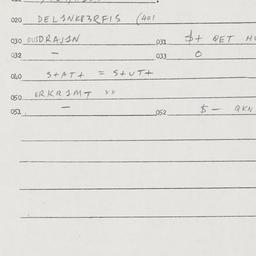 020 DEL1NKB3RFIS (401
030 OUSDRAJ1N 031 $+ QET HO
032 — 033 O
060 S+AT+ = S+UT+
050 ERKR1MT xx
051 — 052 $ — QKN